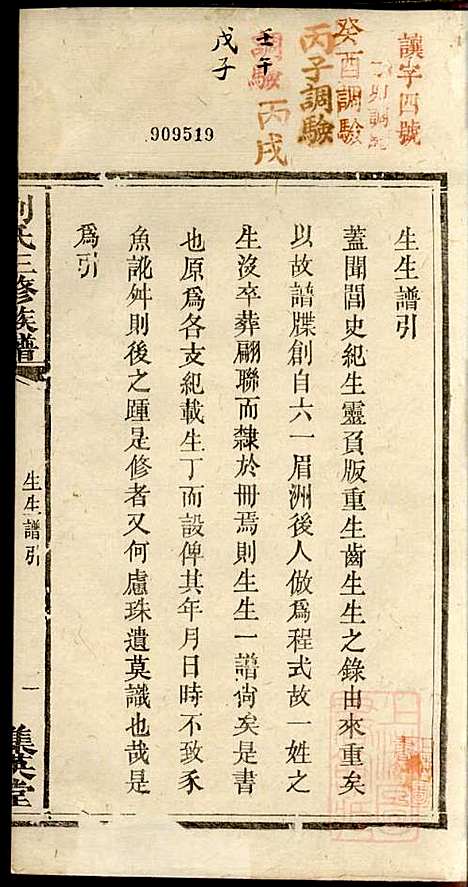 讓字四號
丁卯調驗
癸酉調驗
丙子調驗
壬午
調驗
丙戌
戊子
909519
生生譜引
蓋聞閭史紀生靈頁版重生齒生生之錄由來重矣
以故譜牒創自六一眉洲後人倣為程式故一姓之
生沒卒葬翩聯而隸於冊焉則生生一譜尙矣是書
也原為各支紀載生丁而設俾其年月日時不致豕
魚訛舛則後之踵是修者又何慮珠遺莫識也哉是
為引
劉氏三修族譜
生生譜引
一
集英堂